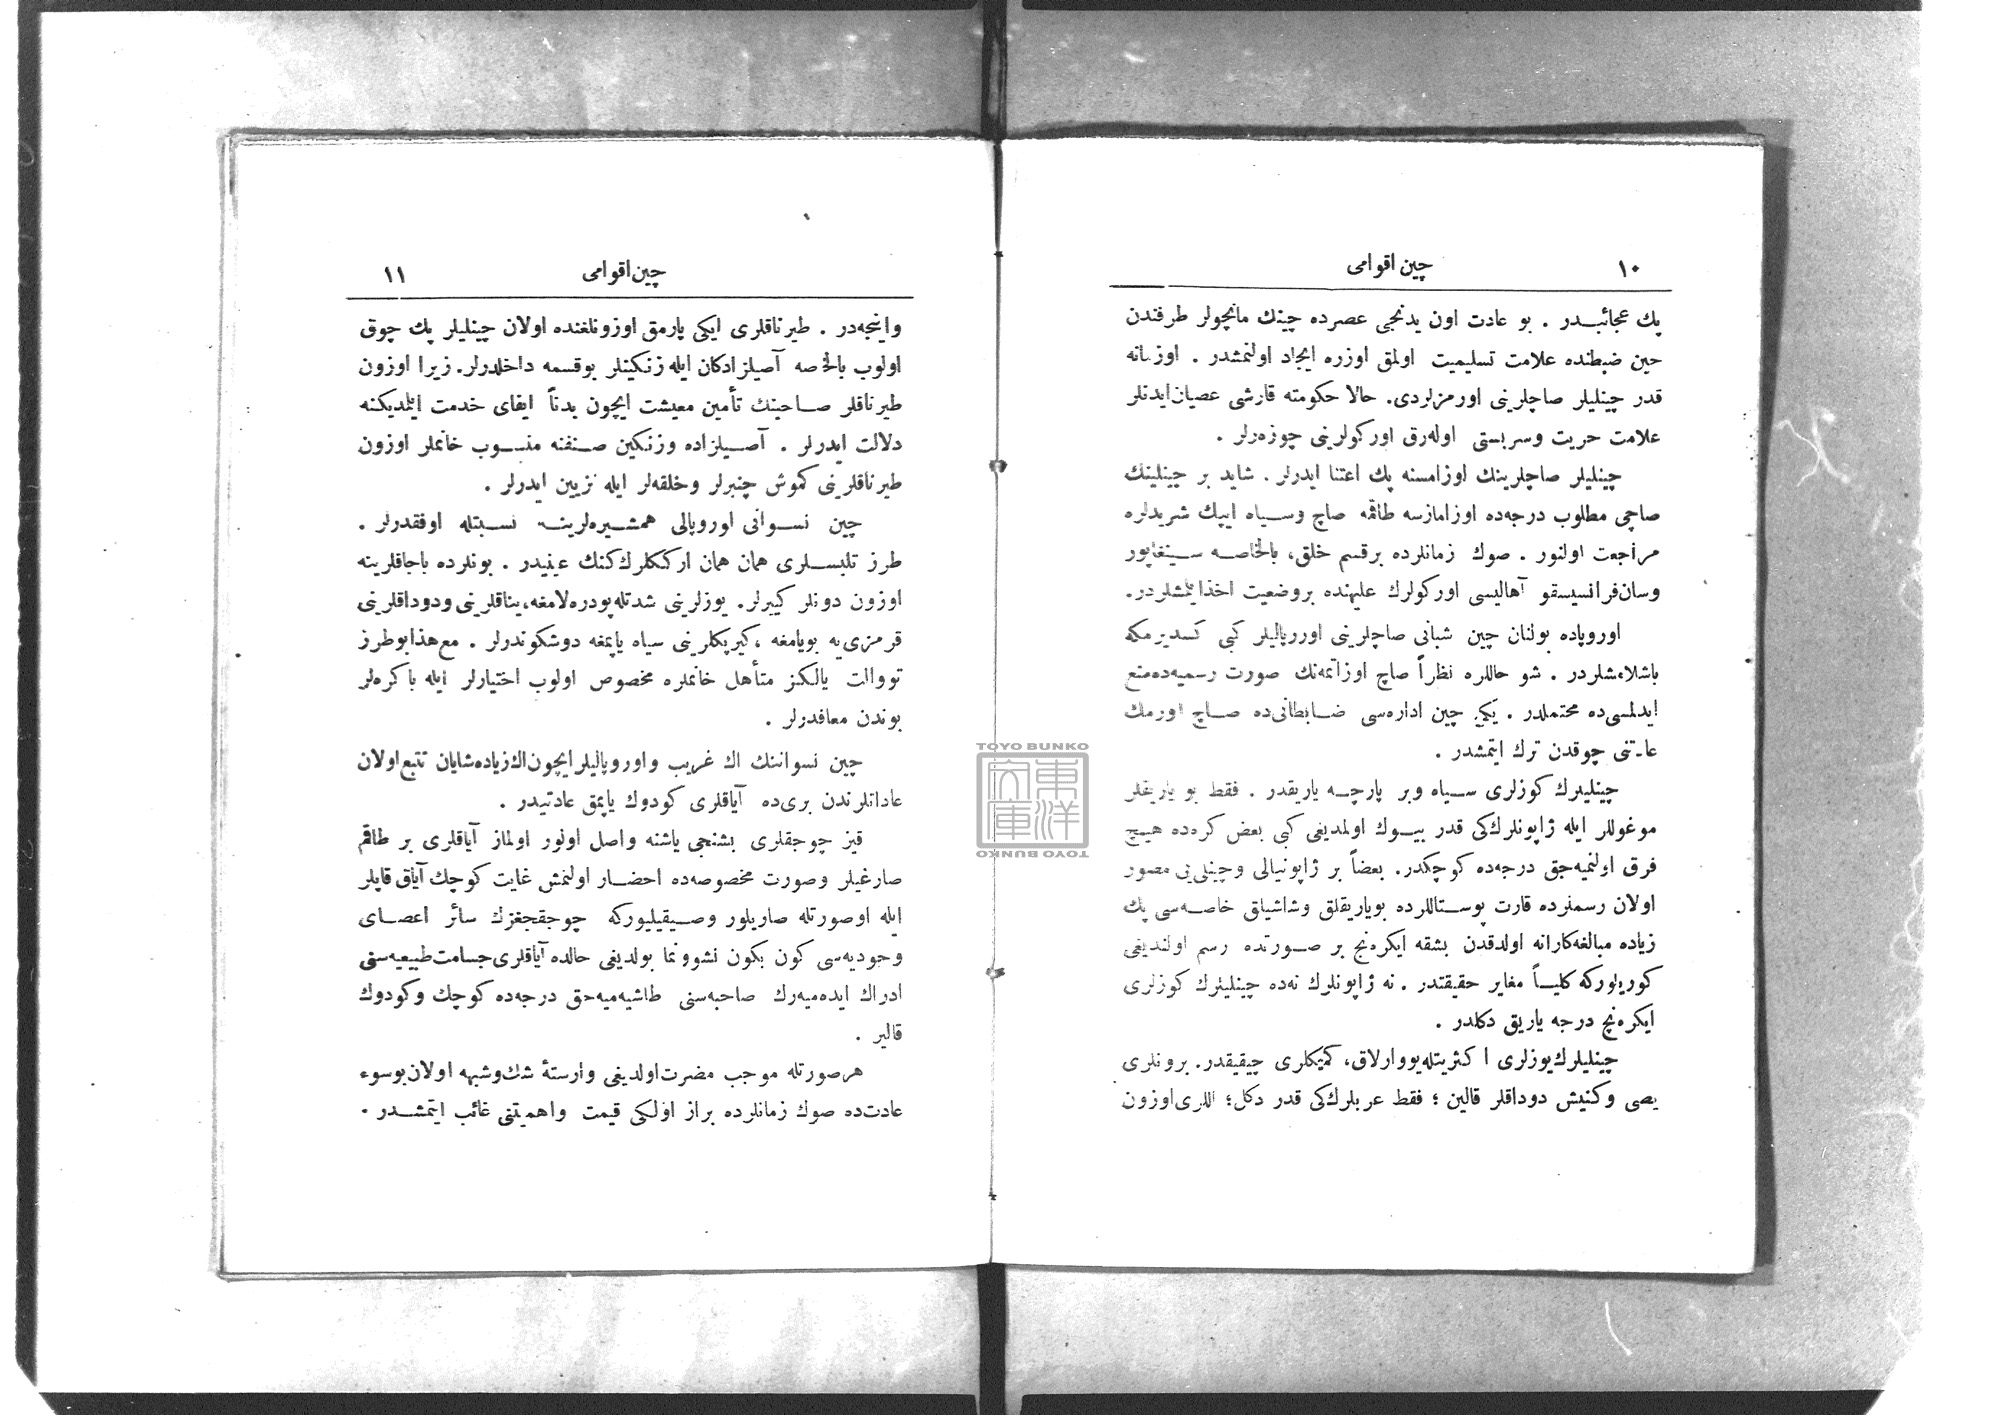 ١٠ چین اقوامی
پك عجائبـدر . بو عادت اون یدنجی عصرده چینك مانچولر طرفندن
حین ضبطنده علامت تسلیمیت اولمق اوزره ایجاد اولنمشدر . اوزمانه
قدر چینلیلر صاچلرینی اورمزلردی. حالا حکومته قارشی عصیان ایدنلر
علامت حریت وسربستی اوله‌رق اورکولرینی چوزه‌رلر .
چینلیلر صاچلرینك اوزامسنه پك اعتنا ایدرلر . شاید بر چینلینك
صاچی مطلوب درجه‌ده اوزامازسه طاقمه صاچ وسـیاه ایپك شریدلره
مراجعت اولنور . صوك زمانلرده برقسم خلق، بالخاصـه سـینغاپور
وسان‌فرانسیسقو آهالیسی اورکولرك علیهنده بروضعیت اخذایتمشلردر.
اوروپاده بولنان چین شبانی صاچلرینی اوروپالیلر کبی کسدیرمکه
باشلامشلردر . شو حاللره نظراً صاچ اوزاتمه‌نك صورت رسمیه‌ده منع
ایدلمسی‌ده محتملدر . یکی چین اداره‌سی ضـابطانی‌ده صـاچ اورمك
عادتنی چوقدن ترك ایتمشدر .
چینلیلرك کوزلری سـیاه وبر پارچـه یاریقدر . فقط بو یاریقلر
موغوللر ایله ژاپونلرك‌کی قدر بیـوك اولمدیغی کبی بعض کره‌ده هیـچ
فرق اولنمیه‌جق درجه‌ده کوچکدر. بعضاً بر ژاپونیالی وچینلی‌یی مصور
اولان رسملرده قارت پوسـتاللرده بویاریقلق وشاشیلق خاصه‌سی پك
زیاده مبالغه‌کارانه اولدقدن بشقه ایکره‌نج بر صـورتده رسم اولندیغی
کوریلورکه کلیـاً مغایر حقیقتدر . نه ژاپونلرك نه‌ده چینلیلرك کوزلری
ایکره‌نچ درجه یاریق دکلدر .
چینلیلرك یوزلری اکثریتله یووارلاق، کمیکلری چیقیقدر. برونلری
یصی وکنیش دوداقلر قالین ؛ فقط عربلرك‌کی قدر دکل؛ اللری اوزون
چین اقوامی ١١
واینجه‌در . طیرناقلری ایکی پارمق اوزونلغنده اولان چینلیلر پك چوق
اولوب بالخاصه آصیلزادکان ایله زنکینلر بوقسمه داخلدرلر. زیرا اوزون
طیرناقلر صـاحبنك تأمین معیشت ایچون بدناً ایفای خدمت ایتمدیکنه
دلالت ایدرلر . آصـیلزاده وزنکین صـنفنه منسـوب خانملر اوزون
طیرناقلرینی کموش چنبرلر وخلقه‌لر ایله تزیین ایدرلر .
چین نسـوانی اوروپالی همشـیره‌لرینه نسـبتله اوفقدرلر .
طرز تلبسـلری همان همان ارککلرك‌کنك عینیدر . بونلرده باجاقلرینه
اوزون دونلر کییرلر. یوزلرینی شدتله پودره‌لامغه، یناقلرینی ودوداقلرینی
قرمزی‌یه بویامغه ، کیرپیکلرینی سیاه یاپمغه دوشکوندرلر . مع‌هذا بوطرز
تووالت یالکز متأهل خانملره مخصوص اولوب اختیارلر ایله باکره‌لر
بوندن معافدرلر .
چین نسواننك اك غریب واوروپالیلر ایچون اك زیاده شایان تتبع اولان
عاداتلرندن بری‌ده آیاقلری کودوك یاپمق عادتیدر .
قیز چوجقلری بشنجی یاشنه واصل اولور اولماز آیاقلری بر طاقم
صارغیلر وصورت مخصوصه‌ده احضـار اولنمش غایت کوچك آیاق قابلر
ایله اوصورتله صاریلور وصـیقیلیورکه چوجقجغزك سائر اعضـای
وجودیه‌سی کون بکون نشوونما بولدیغی حالده آیاقلری جسامت طبیعیه‌سنی
ادراك ایده‌میه‌رك صاحبه‌سنی طاشیه‌میه‌جق درجه‌ده کوچك وکودوك
قالیر .
هر صورتله موجب مضرت اولدیغی وارستۀ شك وشبهه اولان بوسوء
عادت‌ده صوك زمانلرده براز اولکی قیمت واهمیتنی غائب ایتمشـدر .
TOYO BUNKO
東洋文庫
TOYO BUNKO